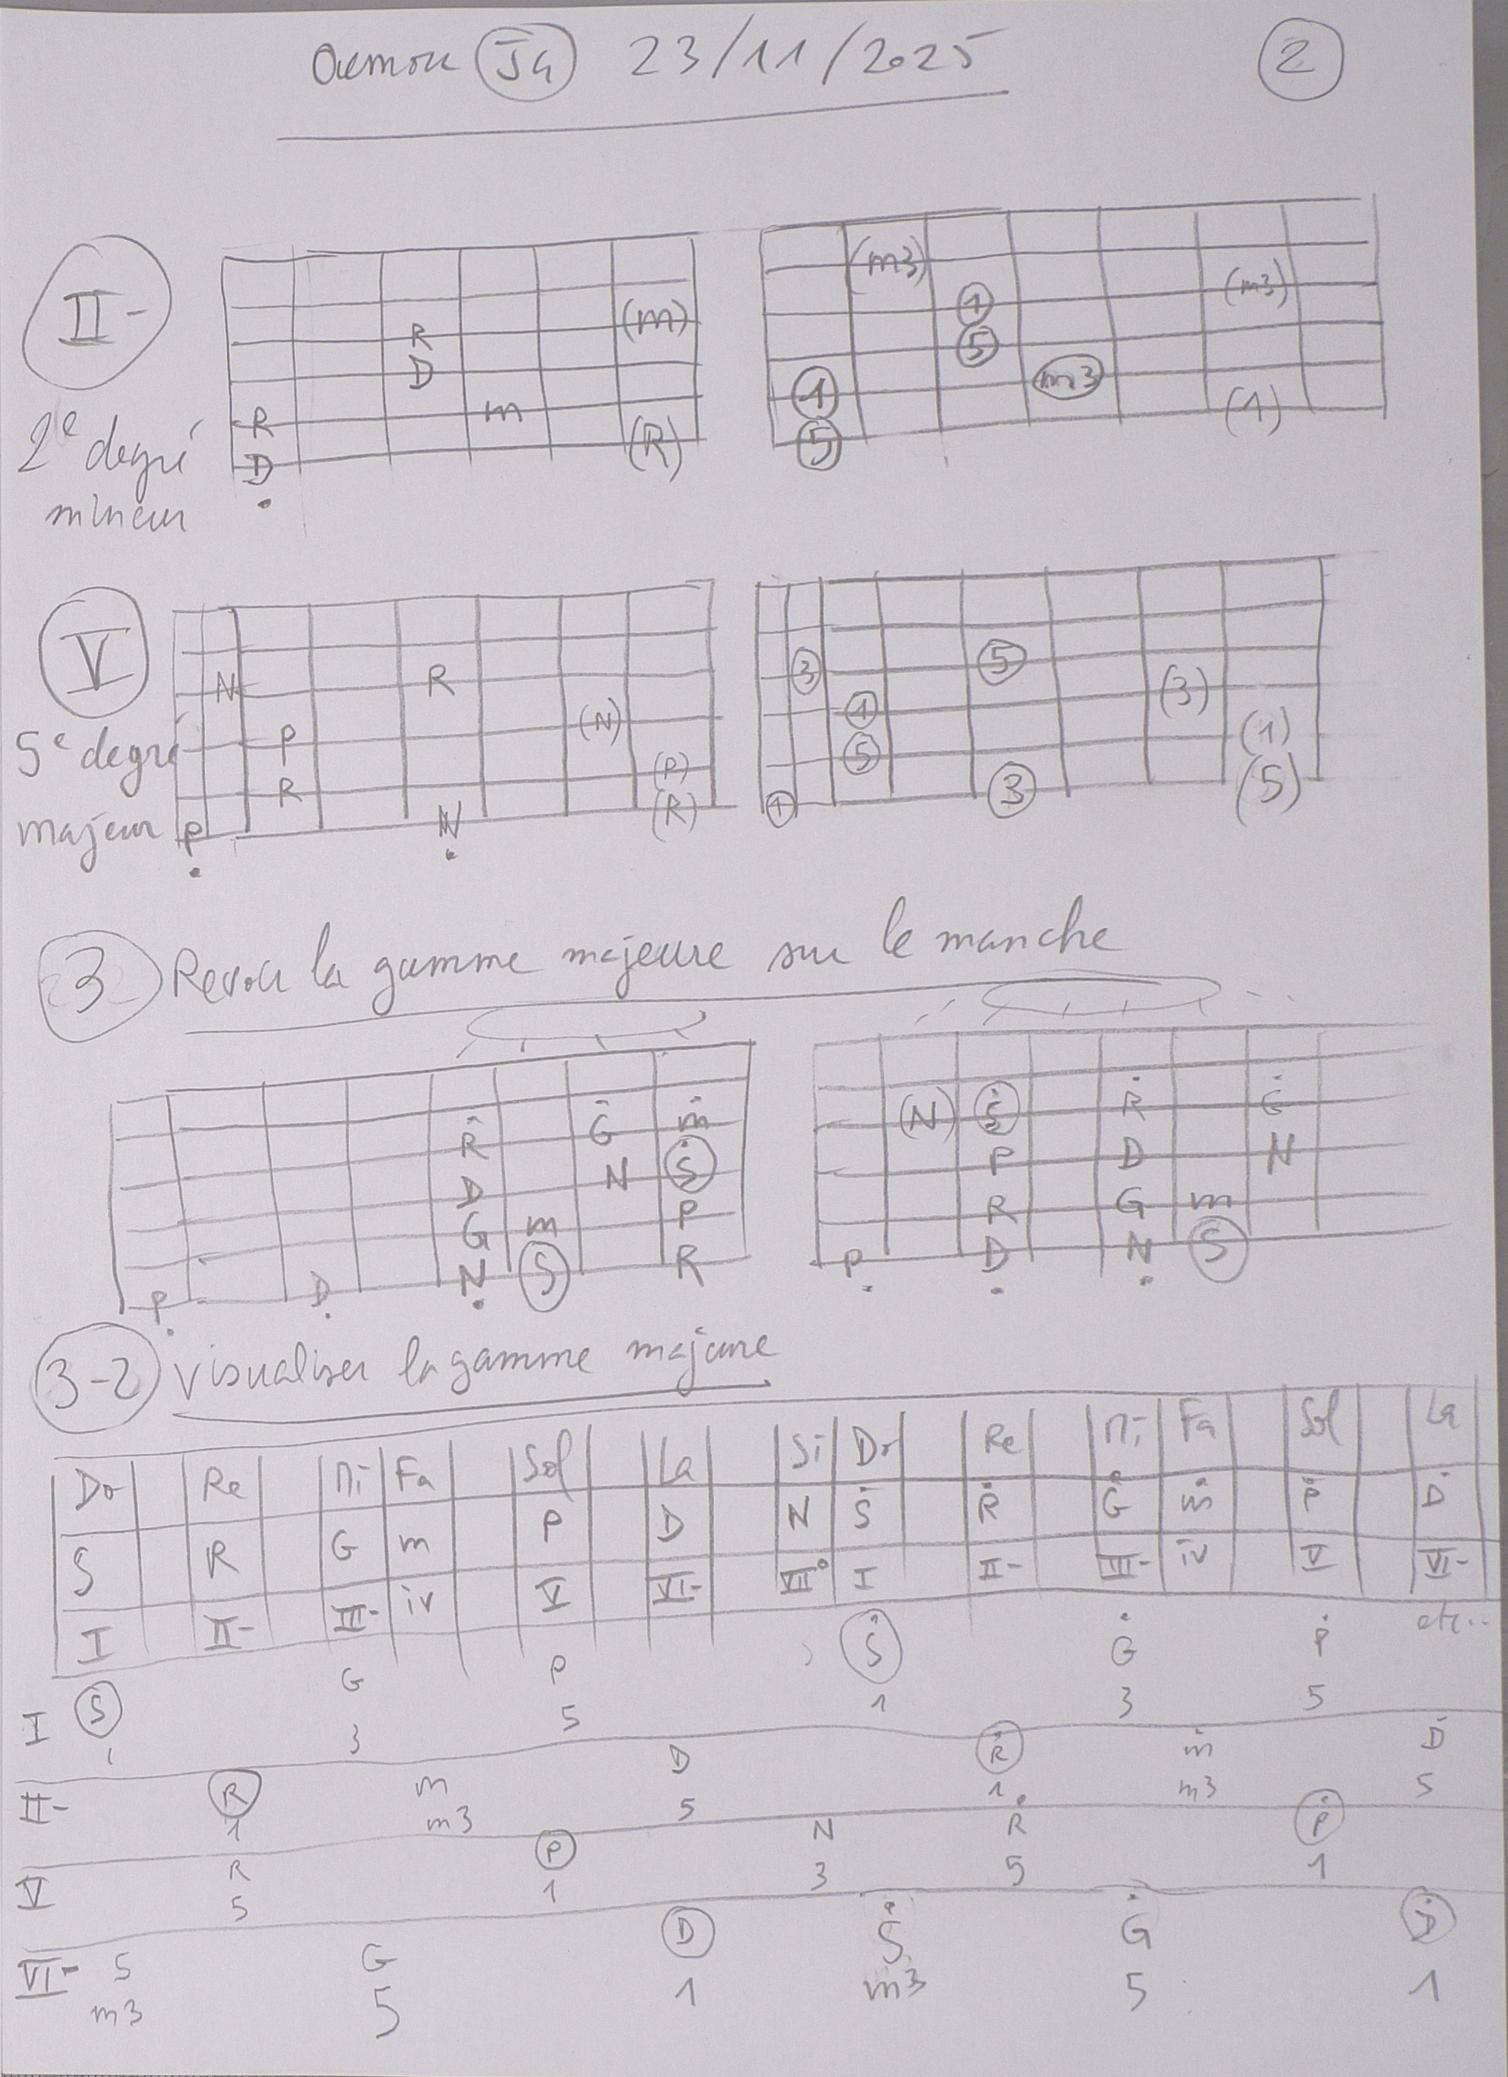 23/11/2025 2
II-
2e degré
mineur
R (m)
D
R m (R)
D
(m3) (m3)
1
5
1 m3 (1)
5
V
5e degré
majeur
N R
P (N)
R (P)
P N (R)
3 5 (3)
1 (1)
5 (5)
1 3
3 Revoir la gamme majeure sur le manche
R G m
D N S
G m P
P D N S R
(N) S R G
P D N
R G m
P D N S
3-2 visualiser la gamme majeure
Do Re Mi Fa Sol La Si Do Re Mi Fa Sol La
S R G m P D N S R G m P D
I II- III- iv V VI- VII° I II- III- iv V VI-
etc..
I S G P S G P
1 3 5 1 3 5
II- R m D R m D
1 m3 5 1 m3 5
V R P N R P
5 1 3 5 1
VI- S G D S G D
m3 5 1 m3 5 1